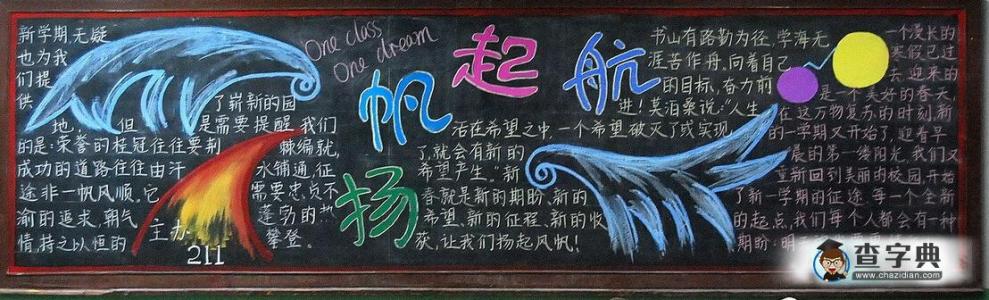 新学期,无疑
也为我
们提
供 了崭新的园
地, 但 是需要提醒我们
的是:荣誉的桂冠往往要荆 棘编就,
成功的道路往往由汗 水铺通,征
途非一帆风顺,它 需要忠贞不
渝的追求,朝气 蓬勃的
情,持之以恒的 攀登。
主办
211
One class
One dream
扬帆起航
书山有路勤为径,学海无
涯苦作舟,向着自己
的目标,奋力前
进!莫泊桑说:"人生
活在希望之中,一个希望破灭了或实现
了,就会有新的
希望产生。"新
春就是新的期盼、新的
希望、新的征程、新的收
获,让我们扬起风帆!
一个漫长的
寒假已过
去,迎来的
是一个美好的春天,
在这万物复苏的时刻,新
的一学期又开始了,迎着早
晨的第一缕阳光,我们又
重新回到美丽的校园,开始
了新一学期的征途,每一个全新
的起点,我们每个人都会有一种
期盼:明
查字典
www.chazidian.com